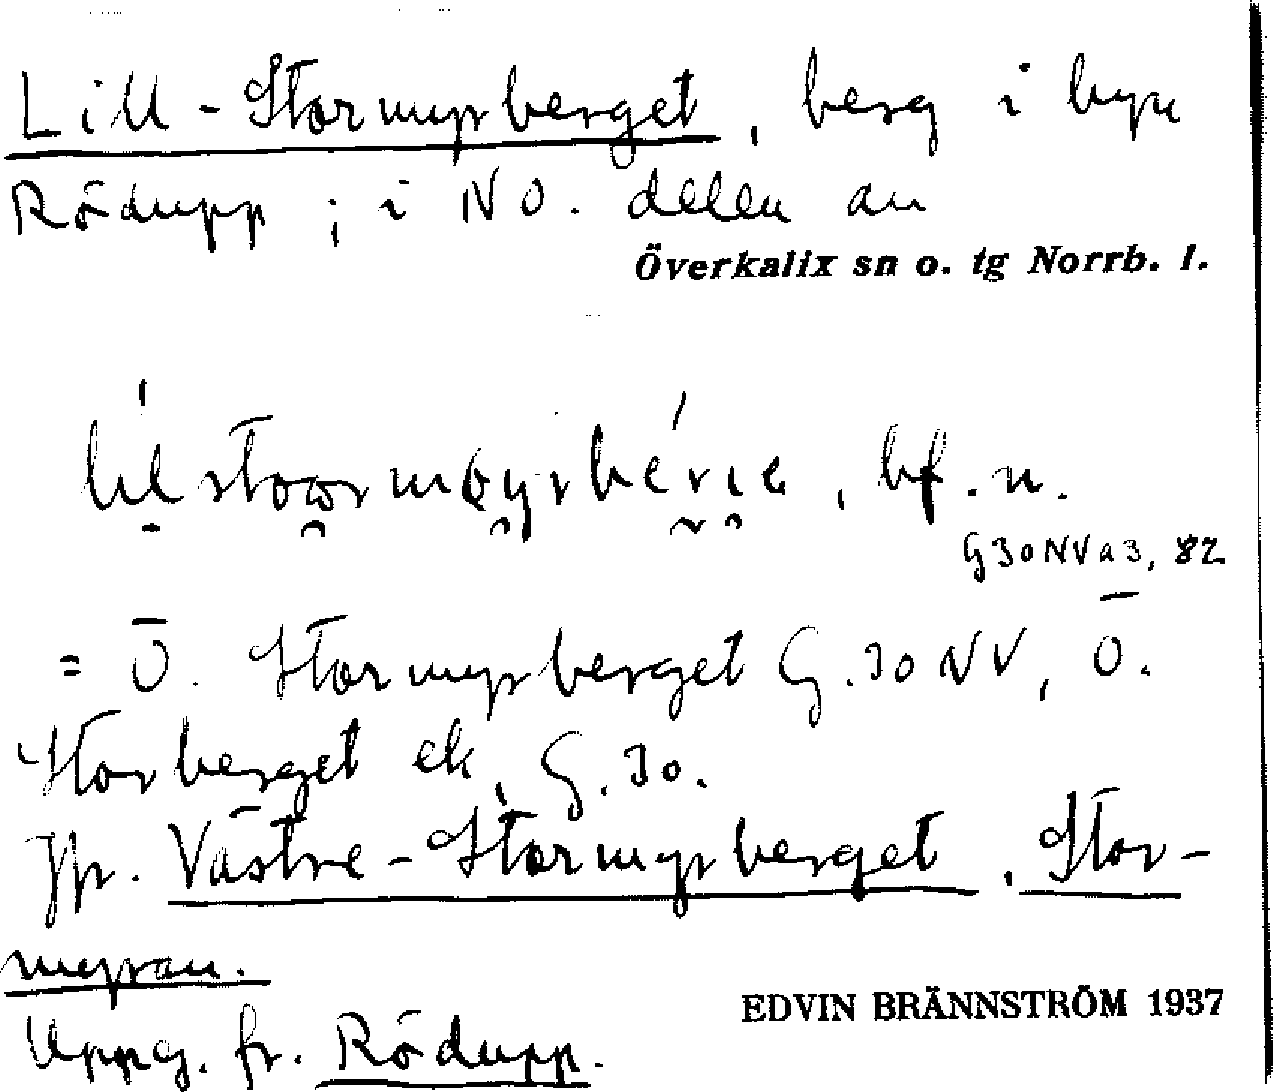 Lill-Stormyrberget, berg i byn
Rödupp; i NO. delen av
Överkalix sn o. tg Norrb. l.
bf. n.
G30NVa3, 82
= Ö. Stormyrberget G.30 NV, Ö.
Storberget ek. G.30.
Jfr. Västre-Stormyrberget, Stor-
myran.
EDVIN BRÄNNSTRÖM 1937
Uppg. fr. Rödupp.